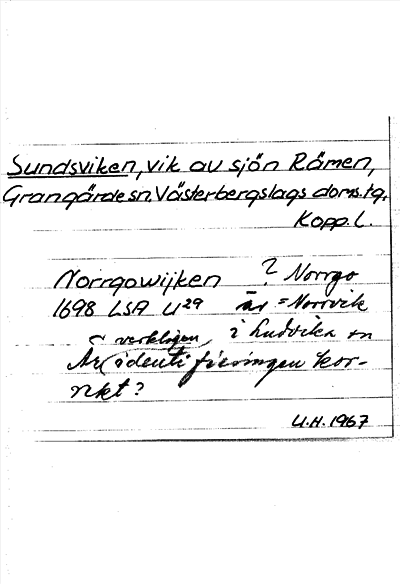 Sundsviken, vik av sjön Rämen,
Grangärde sn. Västerbergslags doms.tg,
Kopp. L.
Norrgowijken ? Norrgo
1698 LSA U29 är = Norrvik
verkligen, i Ludvika sn
Är identifieringen kor-
rekt?
U.H. 1967